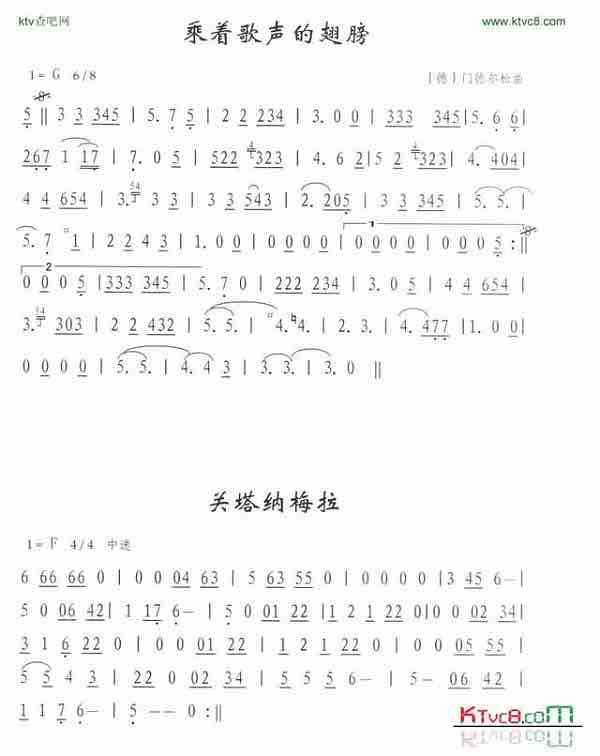 ktv查吧网
www.ktvc8.com
乘着歌声的翅膀
1= G 6/8
[德]门德尔松曲
5 || 3 3 345 | 5. 7 5 | 2 2 234 | 3. 0 0 | 333 345 | 5. 6 6 |
267 1 17 | 7. 0 5 | 522 323 | 4. 6 2 | 5 2 323 | 4. 404 |
4 4 654 | 3. 3 3 | 3 3 543 | 2. 205 | 3 3 345 | 5. 5. |
5. 7 1 | 2 2 4 3 | 1. 0 0 | 0 0 0 0 | 0 0 0 0 | 0 0 0 5 :||
0 0 0 5 | 333 345 | 5. 7 0 | 222 234 | 3. 0 5 | 4 4 654 |
3. 303 | 2 2 432 | 5. 5. | 4. 4. | 2. 3. | 4. 477 | 1. 0 0 |
0 0 0 0 | 5. 5. | 4. 4 3 | 3. 3. | 3. 0 ||
关塔纳梅拉
1= F 4/4 中速
6 66 66 0 | 0 0 04 63 | 5 63 55 0 | 0 0 0 0 | 3 45 6— |
5 0 06 42 | 1 17 6— | 5 0 01 22 | 1 2 1 22 0 | 0 0 02 34 |
3 1 6 22 0 | 0 0 01 22 | 1 2 1 22 0 | 0 0 05 55 |
5 5 4 3 | 22 0 02 34 | 5 5 5 5 | 5— 06 42 |
1 17 6— | 5— 0 :||
KTvc8.com